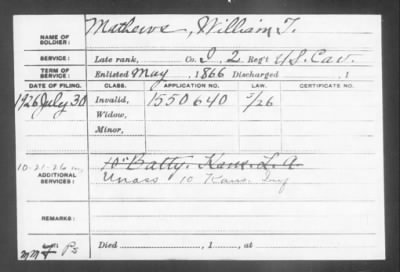 NAME OF SOLDIER: Mathews, William T.
SERVICE: Late rank, Co. I, 2 Reg't U.S. Cav.
TERM OF SERVICE: Enlisted May, 1866 Discharged , 1
DATE OF FILING. CLASS. APPLICATION NO. LAW. CERTIFICATE NO.
1926 July 30 Invalid, 1550640 5/26
Widow,
Minor,
10-21-26
ADDITIONAL SERVICES: 10" Batty. Kans. L. A.
Unass 10 Kans. Inf
REMARKS:
Died , 1 , at